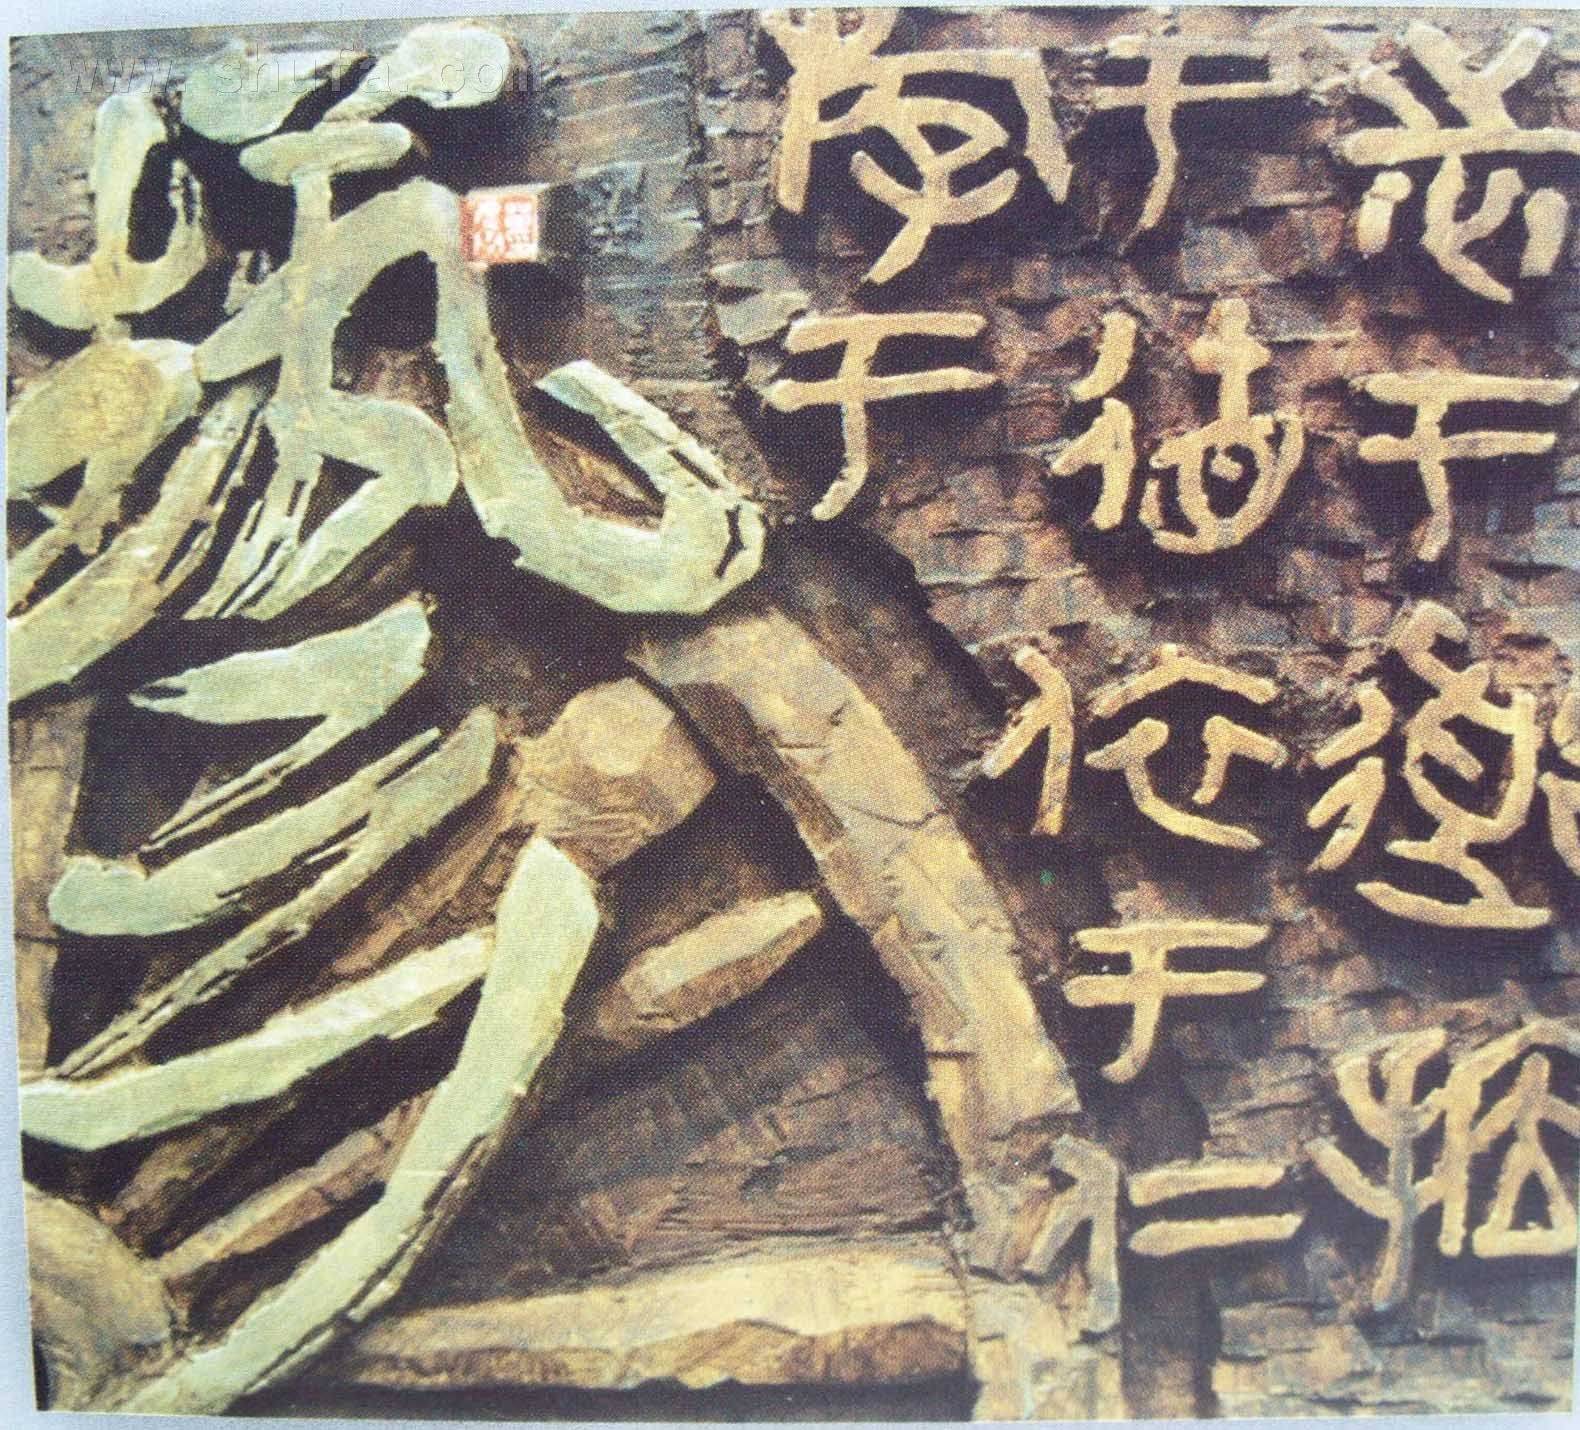 www.shufa.com
志于道据
于德依于仁
游于
藝